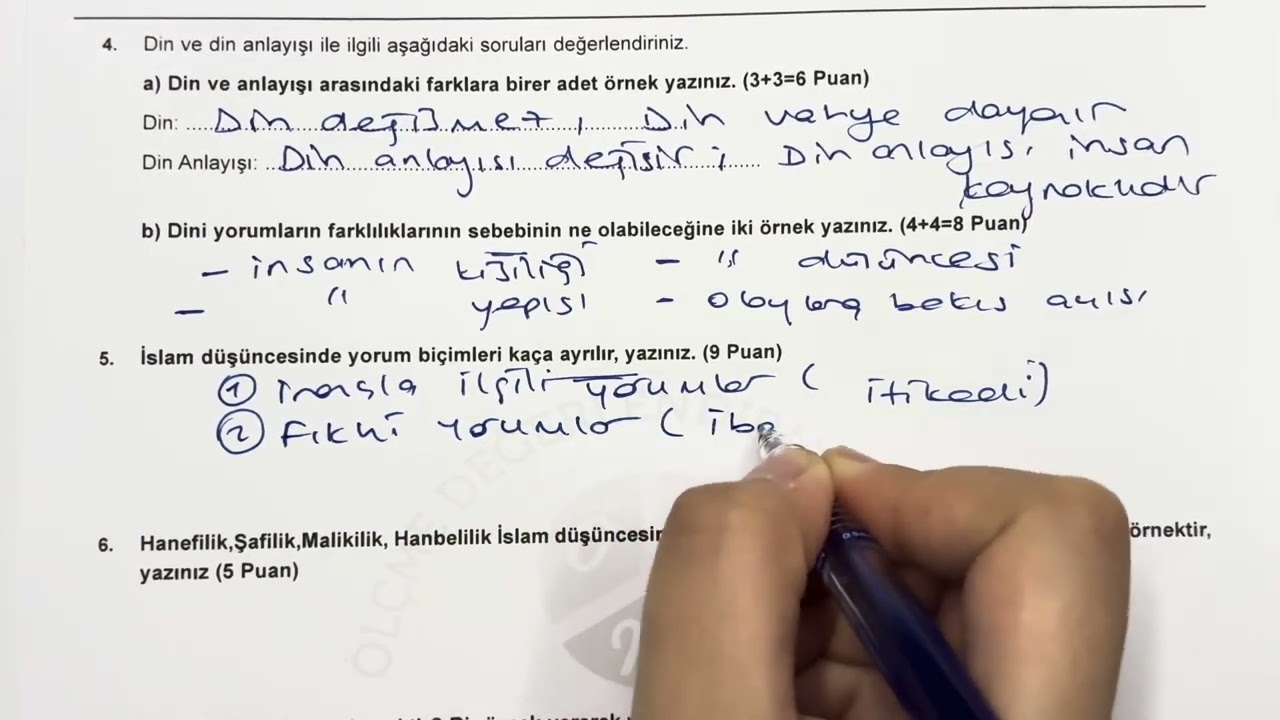 4. Din ve din anlayışı ile ilgili aşağıdaki soruları değerlendiriniz.
a) Din ve anlayışı arasındaki farklara birer adet örnek yazınız. (3+3=6 Puan)
Din: Din değişmez, Din vahye dayanır
Din Anlayışı: Din anlayışı değişir; Din anlayışı insan
kaynaklıdır
b) Dini yorumların farklılıklarının sebebinin ne olabileceğine iki örnek yazınız. (4+4=8 Puan)
- insanın kişiliği - " düşüncesi
- " yapısı - olaylara bakış açısı
5. İslam düşüncesinde yorum biçimleri kaça ayrılır, yazınız. (9 Puan)
① inançla ilgili yorumlar (itikadi)
② fıkhi yorumlar (iba
6. Hanefilik,Şafilik,Malikilik, Hanbelilik İslam düşüncesin örnektir,
yazınız (5 Puan)
ÖLÇME DEĞERLENDİR